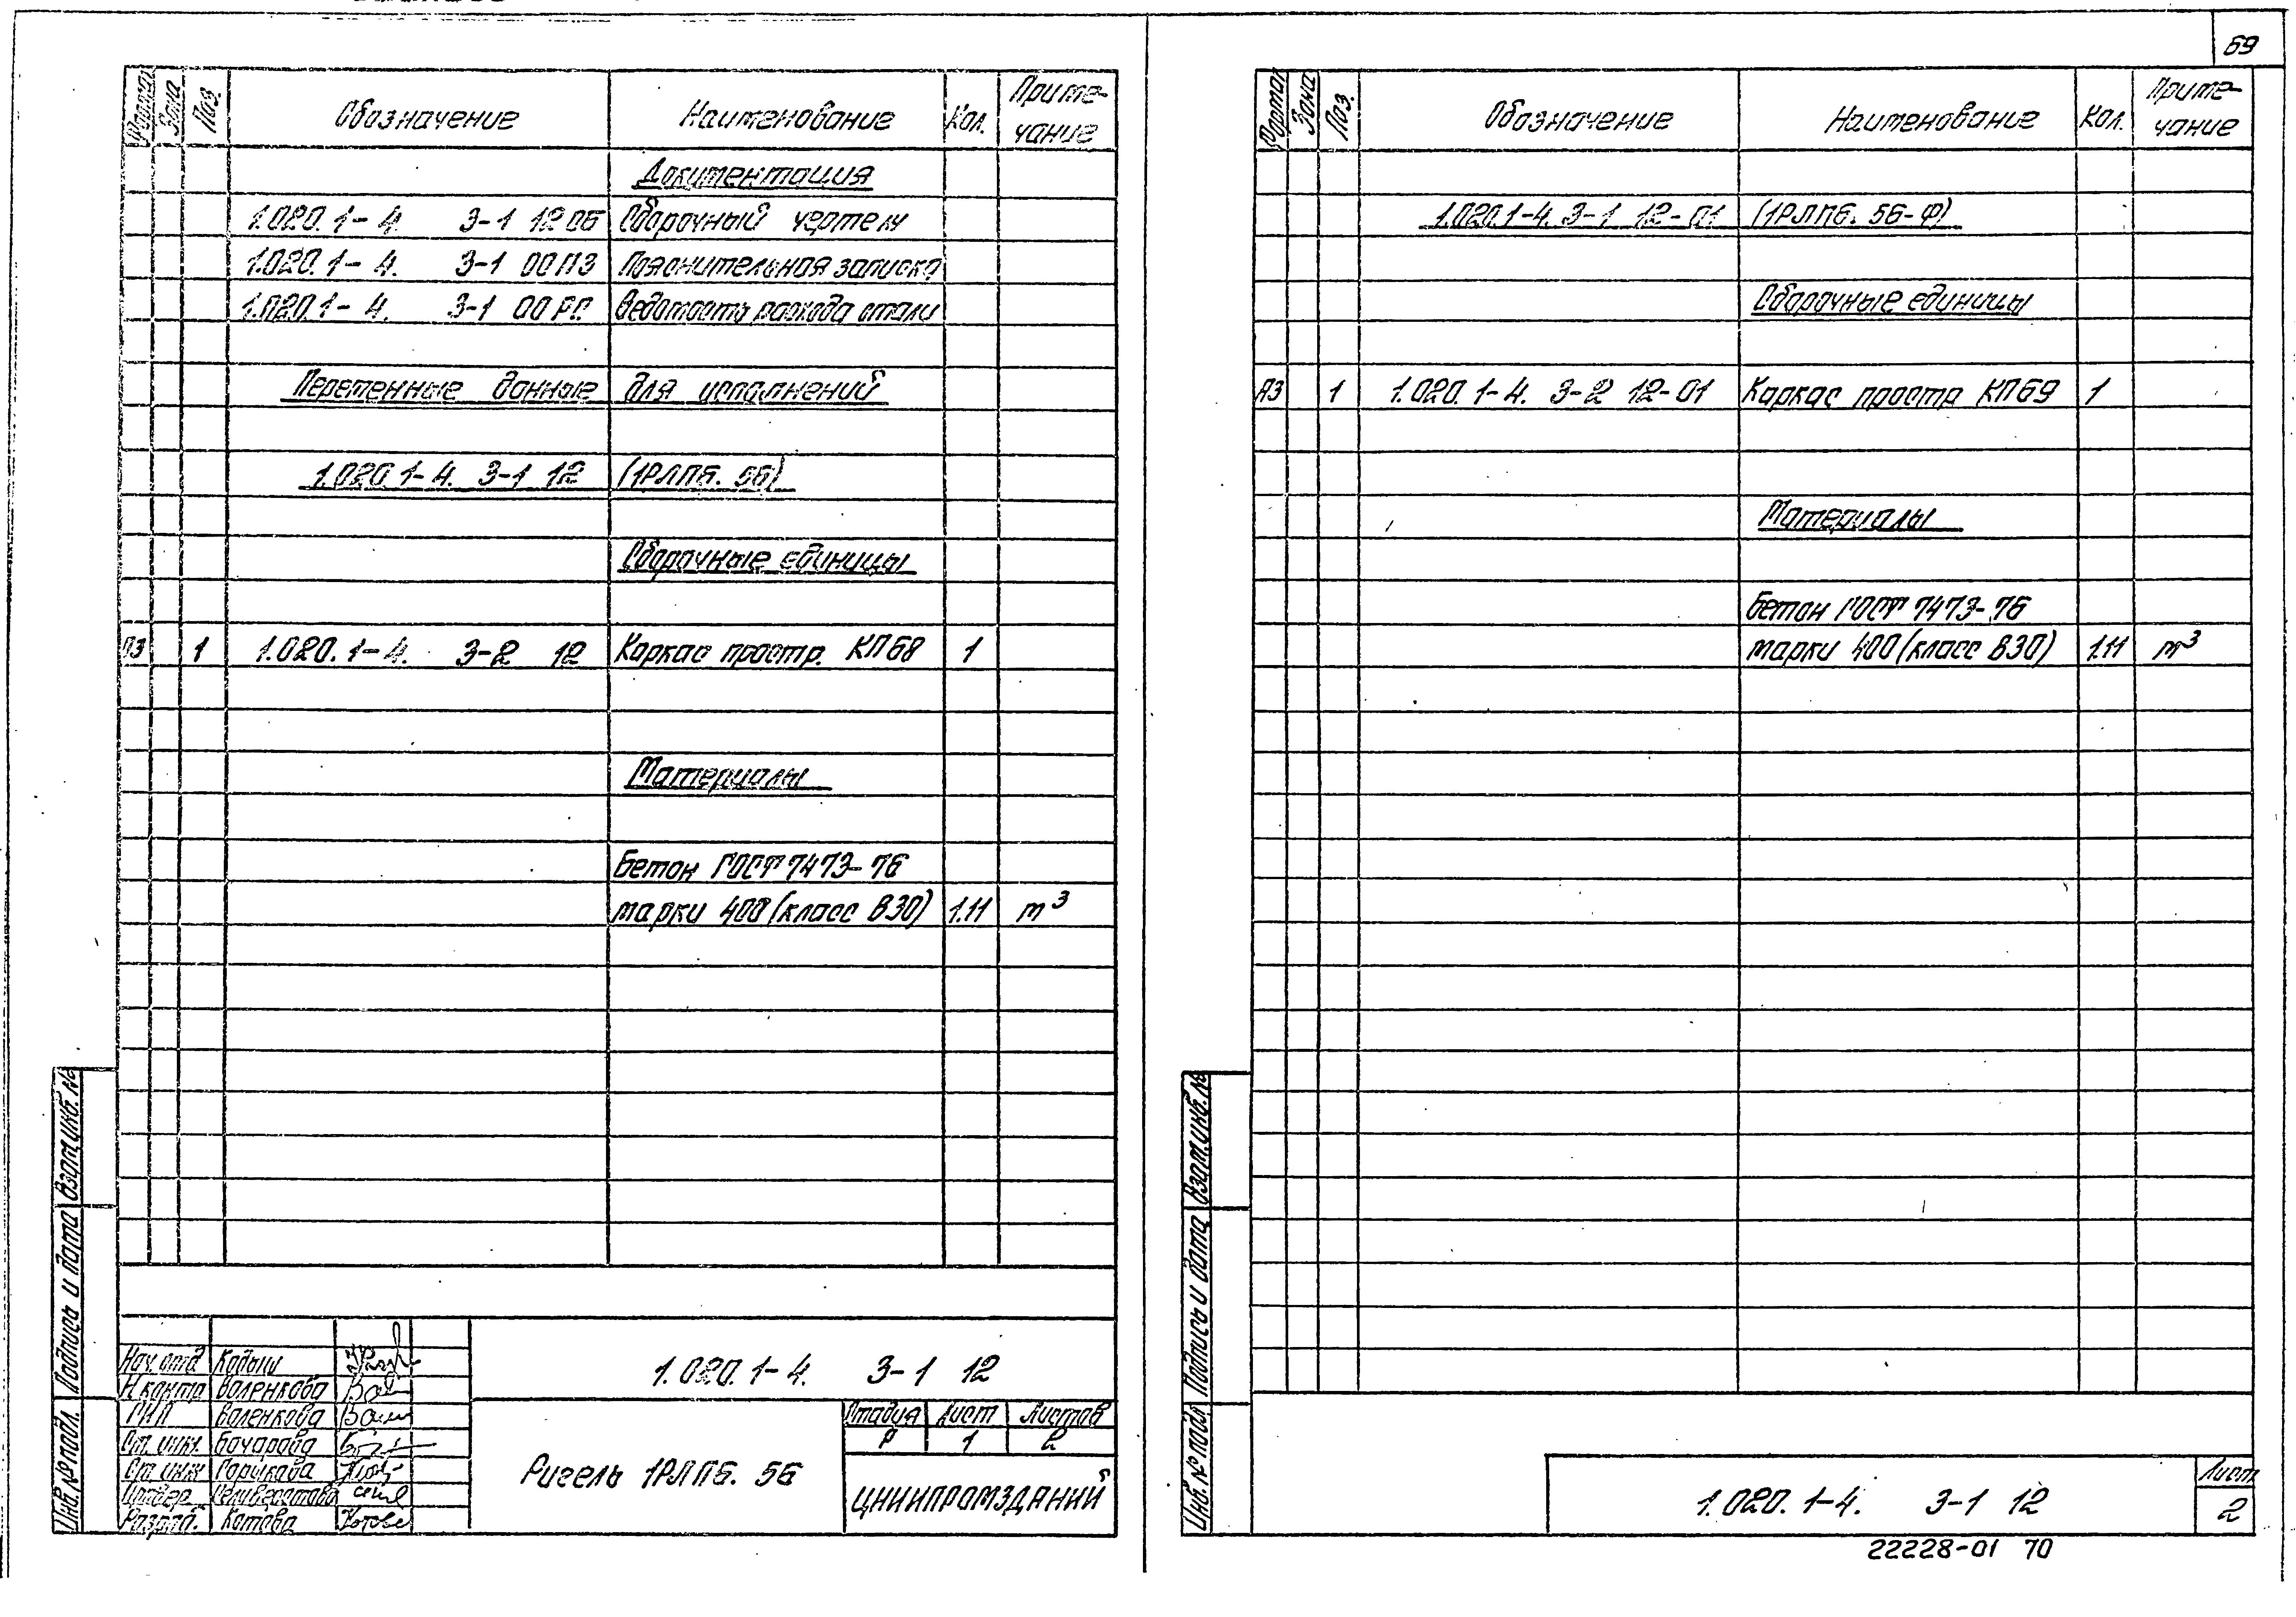 Формат Зона Поз. Обозначение Наименование Кол. Приме-
чание
Документация
1.020.1-4. 3-1 12 СБ Сборочный чертеж
1.020.1-4. 3-1 00 ПЗ Пояснительная записка
1.020.1-4. 3-1 00 РС Ведомость расхода стали
Переменные данные для исполнений
1.020.1-4. 3-1 12 (1РЛП6.56)
Сборочные единицы
А3 1 1.020.1-4. 3-2 12 Каркас простр. КП68 1
Материалы
Бетон ГОСТ 7473-76
марки 400 (класс В30) 1.11 m³
Взам.инв.№
Подпись и дата
Инв.№ подл.
Нач.отд Кодыш
Н.контр. Воленкова
ГИП Воленкова
Ст. инж.
Ст. инж
Разраб. Котова
1.020.1-4. 3-1 12
Ригель 1РЛП6.56
Стадия Лист Листов
Р 1 2
ЦНИИПРОМЗДАНИЙ
69
Формат Зона Поз. Обозначение Наименование Кол. Приме-
чание
1.020.1-4. 3-1 12-01 (1РЛП6.56-Ф)
Сборочные единицы
А3 1 1.020.1-4. 3-2 12-01 Каркас простр КП69 1
Материалы
Бетон ГОСТ 7473-76
марки 400 (класс В30) 1.11 m³
Взам.инв.№
Подпись и дата
Инв.№ подл
1.020.1-4. 3-1 12
Лист
2
22228-01 70